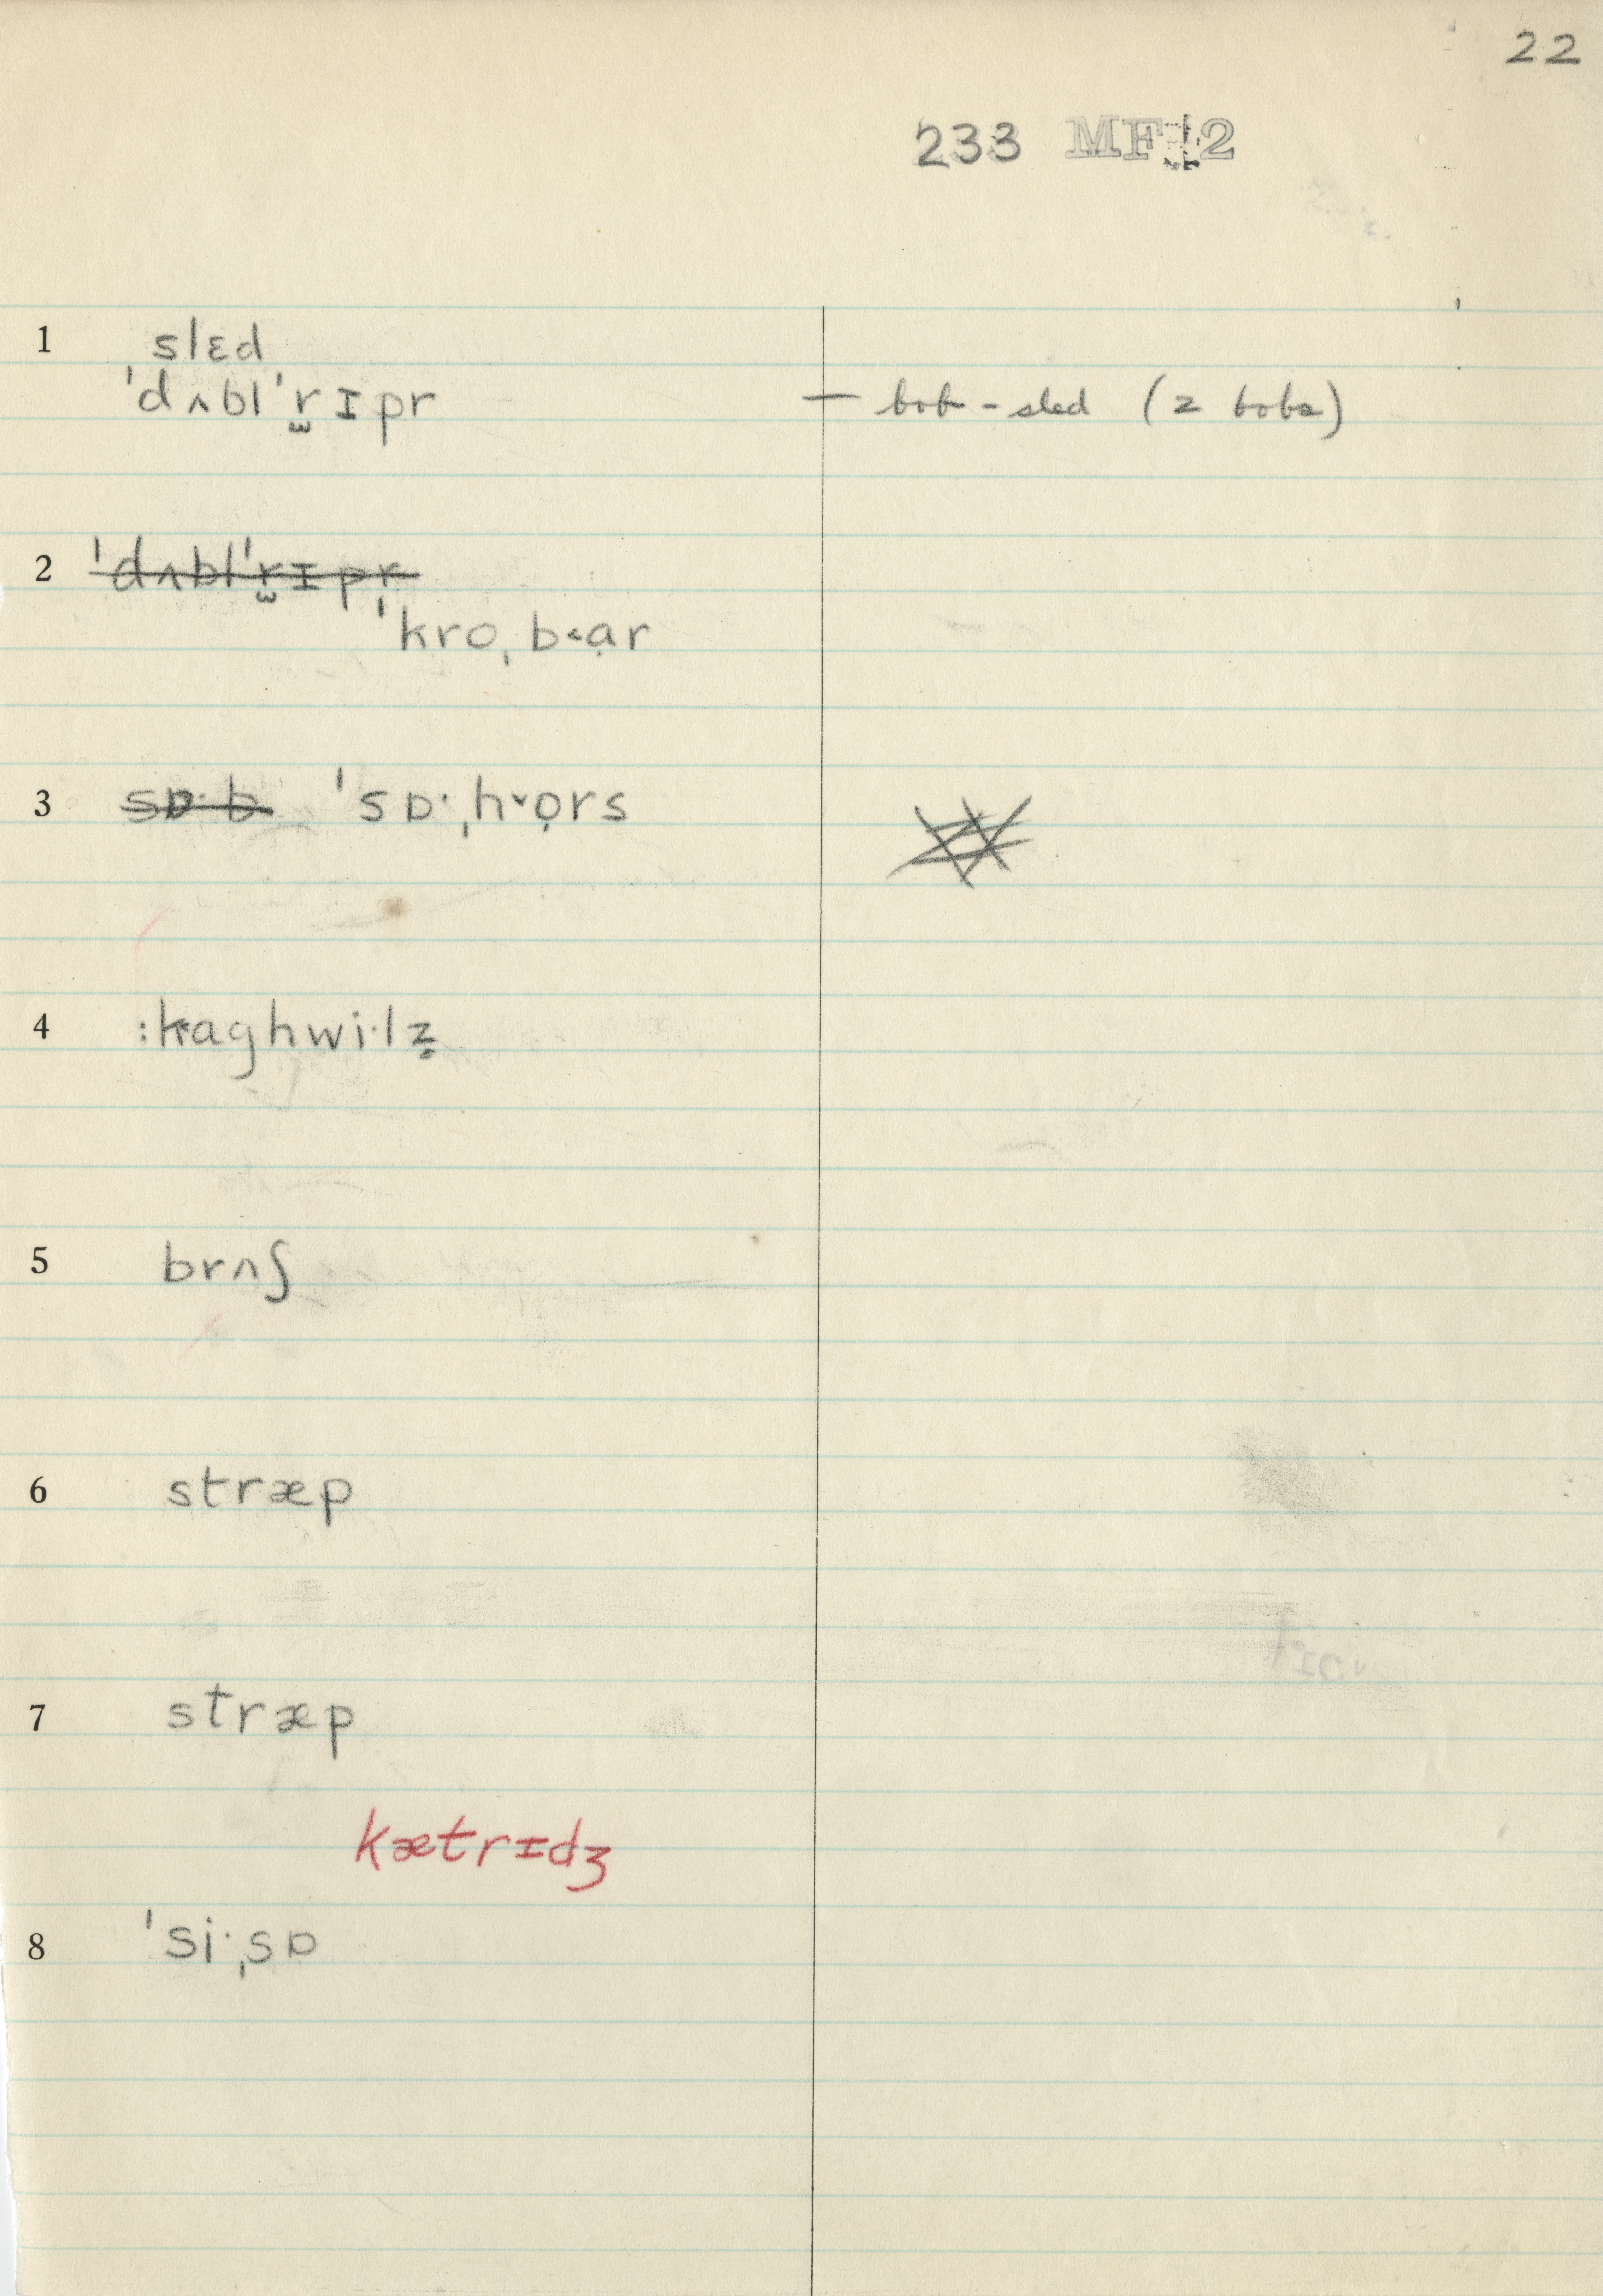 22
233 MF 2
1 slɛd
ˈdʌblˈr̼ɪpr — bob-sled (2 bobs)
2 ˈdʌblˈr̼ɪpr
ˈkroˌb˂ạr
3 sɒ·b ˈsɒ·ˌh˅ọrs
4 :kaghwi·lz̥
5 brʌʃ
6 stræp
7 stræp
kætrɪdʒ
8 ˈsi·ˌsɒ